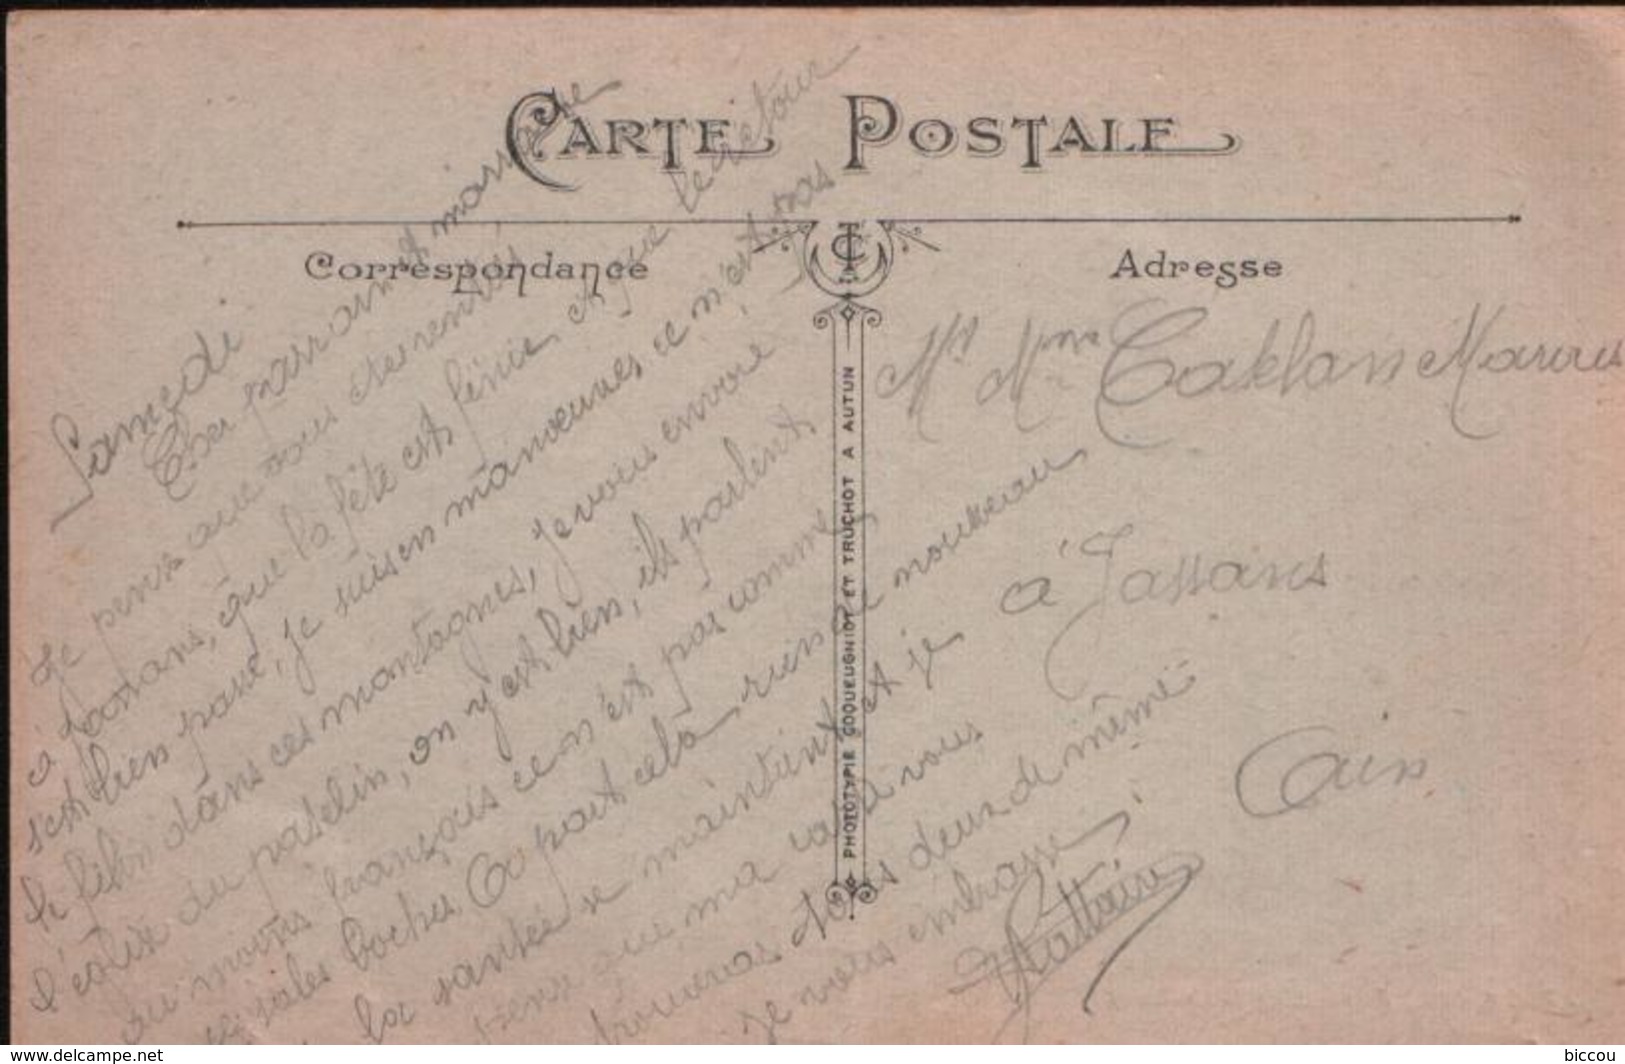 CARTE POSTALE
Correspondance
Adresse
Samedi
Cher parrain et marraine
Je pense que vous êtes rentrés
à Jassans, que la fête est finie et que le retour
s'est bien passé, je suis en manoeuvres ce n'est pas
le filon dans ces montagnes, je vous envoie
l'église du patelin, on y est bien, ils parlent
au moins français ce n'est pas comme
ces sales boches. A part cela rien de nouveau
la santé se maintient et je
pense que ma carte vous
trouveras tous deux de même
je vous embrasse
Mr Mme Marius
à Jassans
Ain
PHOTOTYPIE COQUEUGNIOT ET TRUCHOT A AUTUN
www.delcampe.net
biccou